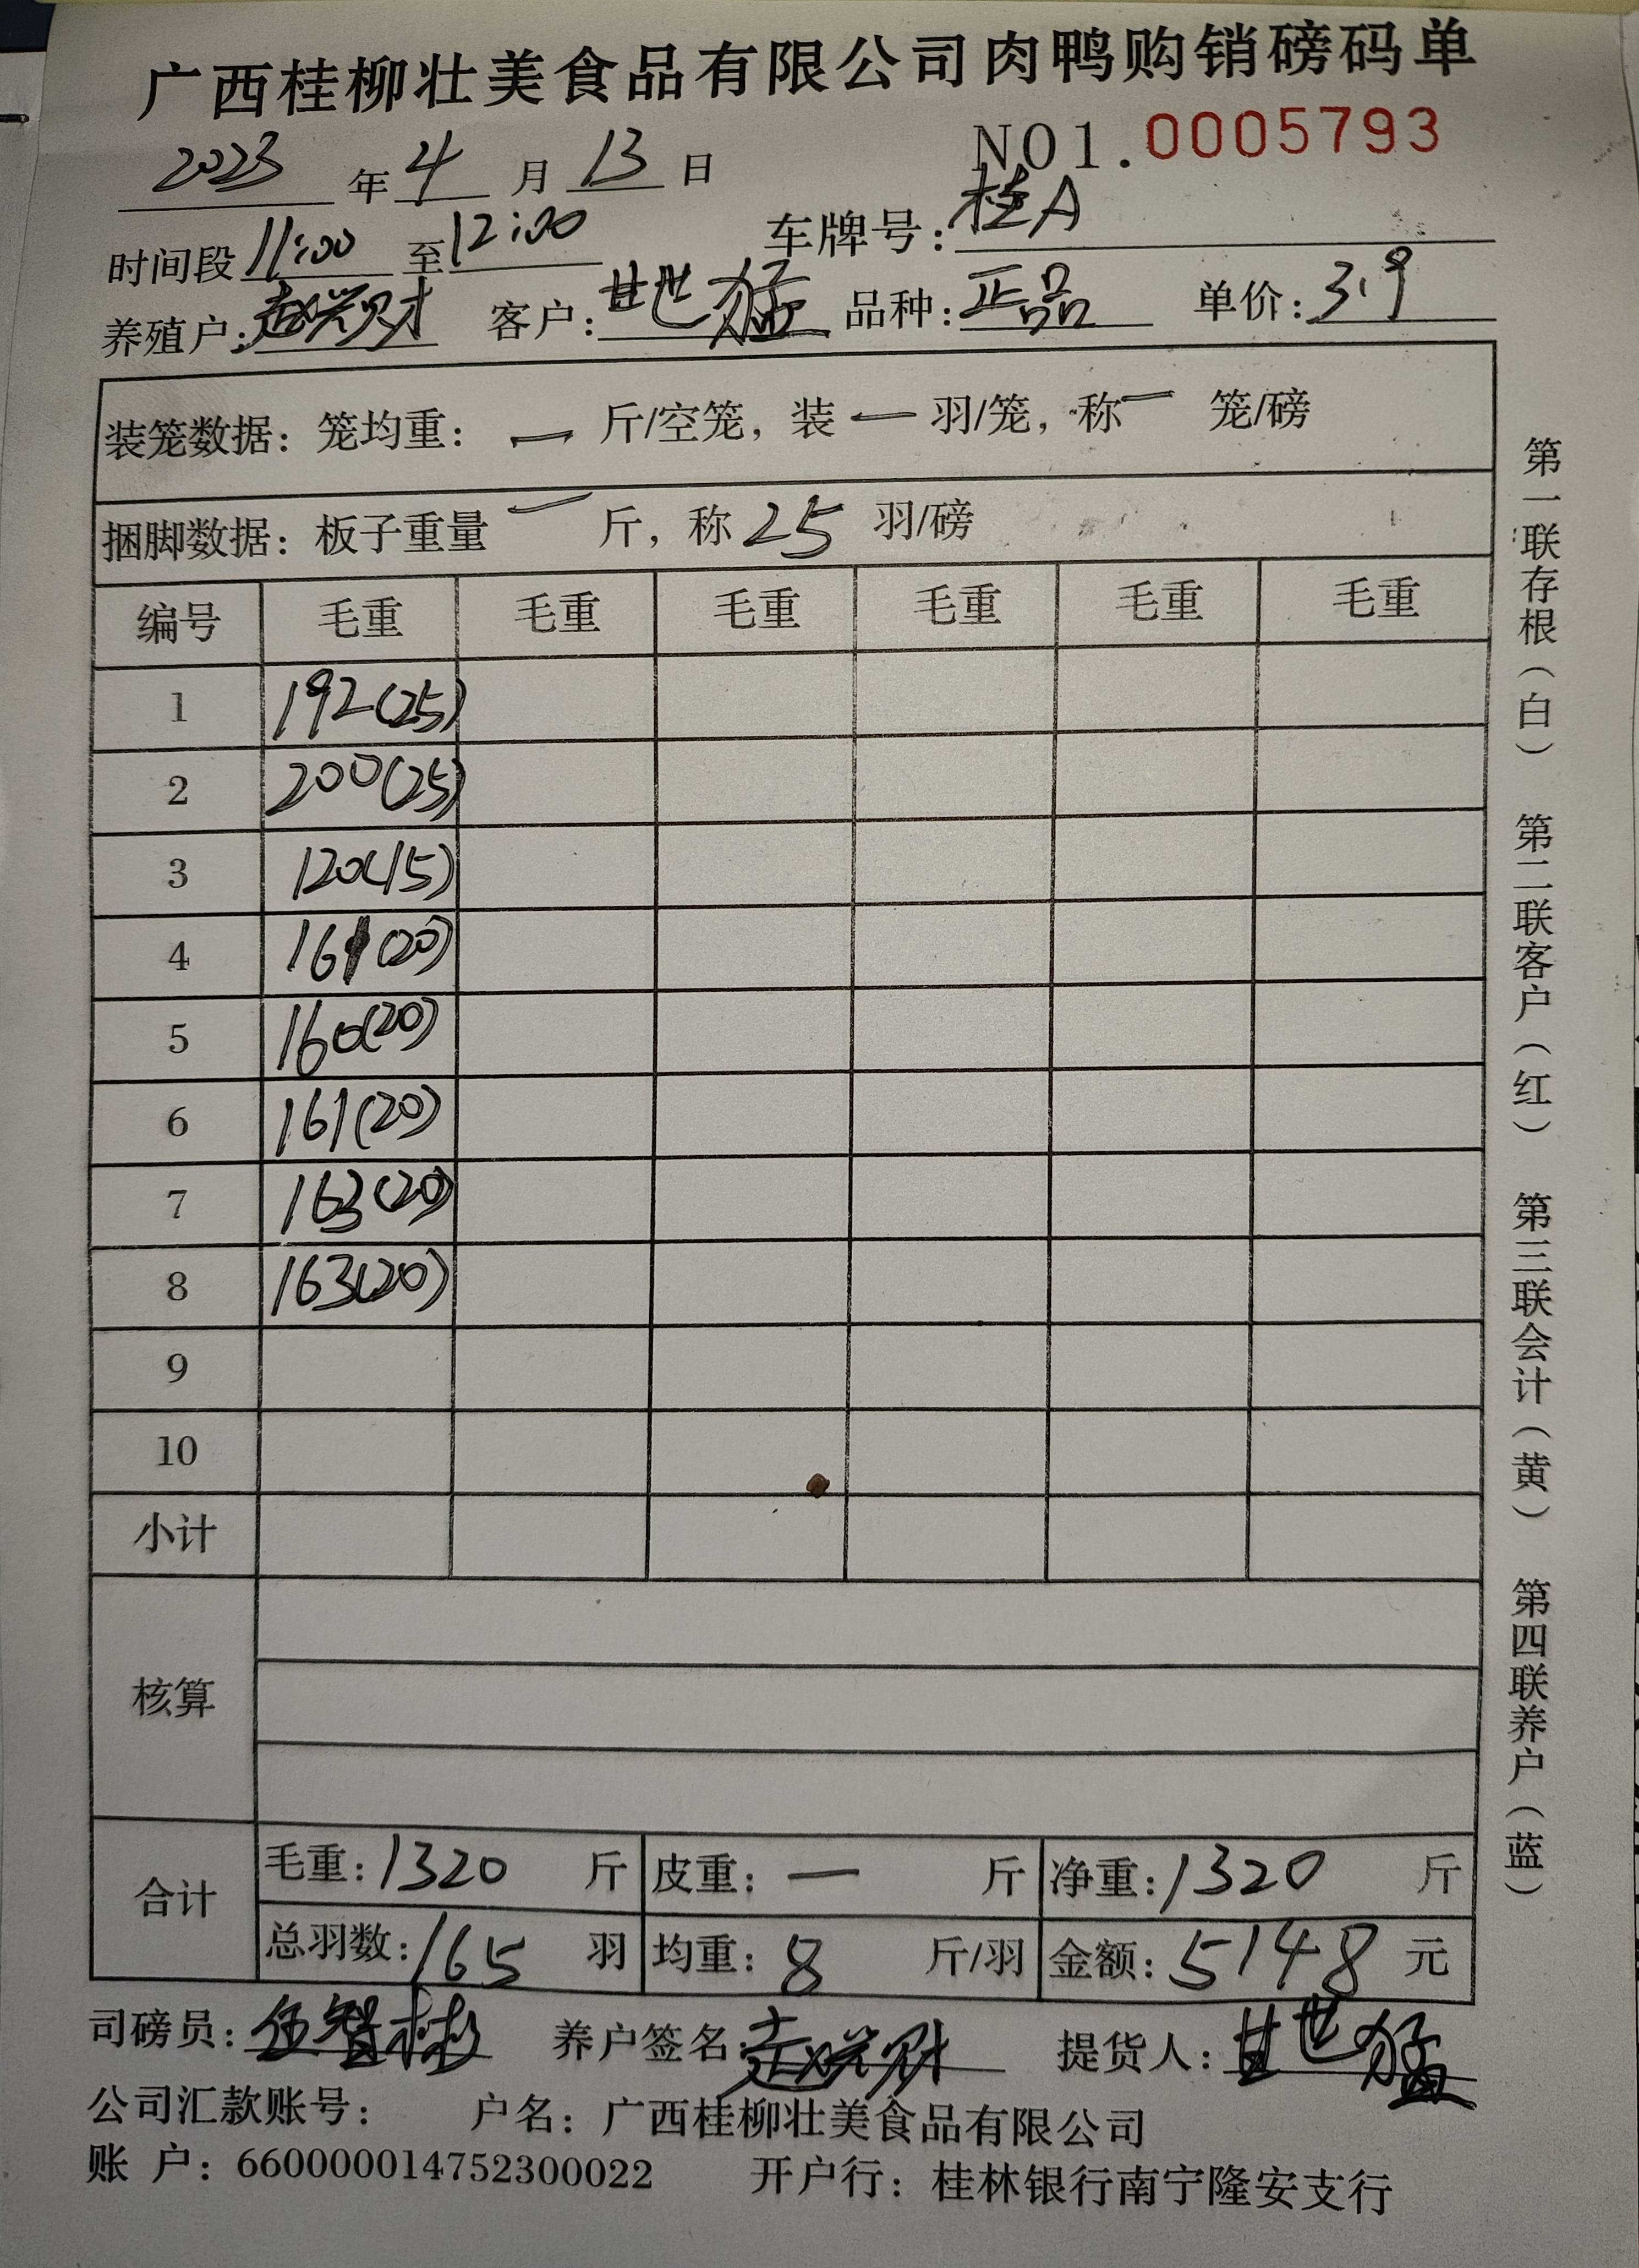 广西桂柳壮美食品有限公司肉鸭购销磅码单
NO1.0005793
2023 年 4 月 13 日
时间段 11:00 至 12:00 车牌号: 桂A
养殖户: 赵 财 客户: 甘世猛 品种: 正品 单价: 3.9
装笼数据: 笼均重: — 斤/空笼, 装 — 羽/笼, 称 — 笼/磅
捆脚数据: 板子重量 — 斤, 称 25 羽/磅
编号 毛重 毛重 毛重 毛重 毛重 毛重
1 192(25)
2 200(25)
3 120(15)
4 161(20)
5 160(20)
6 161(20)
7 163(20)
8 163(20)
9
10
小计
核算
合计 毛重: 1320 斤 皮重: — 斤 净重: 1320 斤
总羽数: 165 羽 均重: 8 斤/羽 金额: 5148 元
司磅员: 伍智彬 养户签名: 赵 财 提货人: 甘世猛
公司汇款账号: 户名: 广西桂柳壮美食品有限公司
账 户: 660000014752300022 开户行: 桂林银行南宁隆安支行
第一联存根(白) 第二联客户(红) 第三联会计(黄) 第四联养户(蓝)